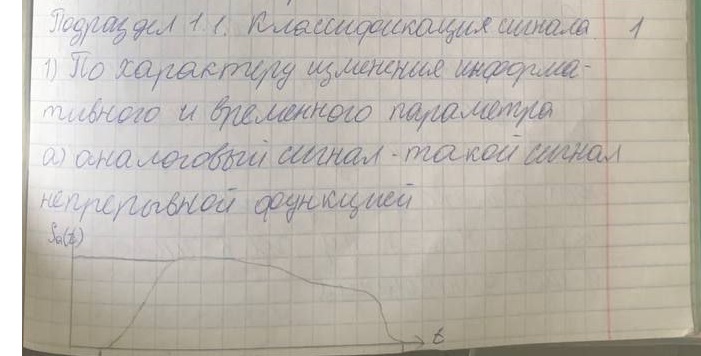 Подраздел 1.1. Классификация сигнала. 1
1) По характеру изменения информа-
тивного и временного параметра
а) аналоговый сигнал - такой сигнал
непрерывной функцией
Sa(t)
t